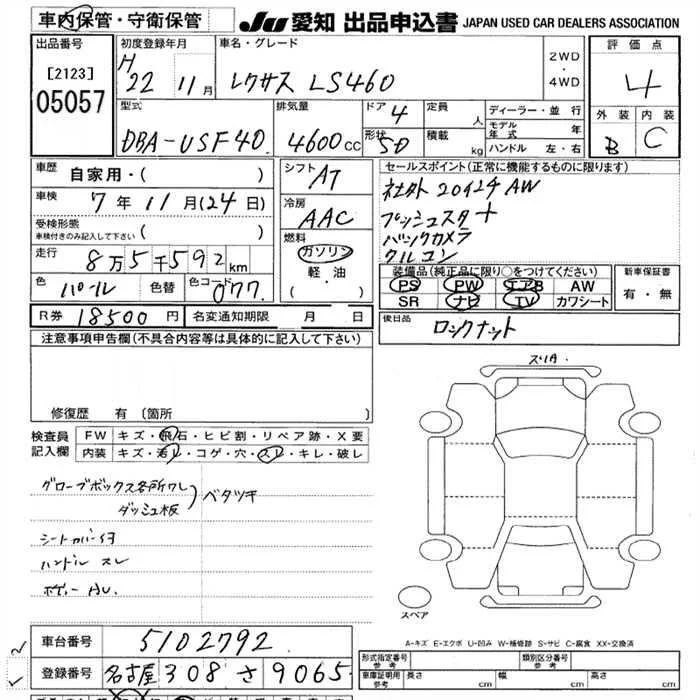 車内保管・守衛保管
JU 愛知 出品申込書 JAPAN USED CAR DEALERS ASSOCIATION
出品番号 [2123] 05057
初度登録年月 H22 11月
車名・グレード レクサス LS460
2WD・4WD
評価点 4
外装 B 内装 C
型式 DBA-USF40
排気量 4600cc
ドア 4
形状 SD
定員 人
積載 kg
ディーラー・並行
モデル年式 年
ハンドル 左・右
車歴 自家用・( )
車検 7年11月(24日)
受検形態 車検付きのみ記入して下さい ( )
走行 8万5千592km
色 パール 色替 色コード 077
シフト AT
冷房 AAC
燃料 ガソリン 軽・油 ( ・ )
セールスポイント(正常に機能するものに限ります)
社外20インチAW
プッシュスタート
バックカメラ
クルコン
装備品(純正品に限り○をつけてください)
PS PW エアB AW
SR ナビ TV カワシート
新車保証書 有・無
R券 18500円 名変通知期限 月 日
後日品 ロックナット
注意事項申告欄(不具合内容等は具体的に記入して下さい)
修復歴 有(箇所
検査員記入欄
FW キズ・飛石・ヒビ割・リペア跡・X要
内装 キズ・汚レ・コゲ・穴・スレ・キレ・破レ
グローブボックス各所ワレ
ダッシュ板
ベタツキ
シートカバー付
ハンドル スレ
ボディー AU.
スリ有
スペア
A-キズ E-エクボ U-凹み W-補修跡 S-サビ C-腐食 XX-交換済
車台番号 5102792
登録番号 名古屋 308 さ 9065
形式指定番号 参考 類別区分番号 参考
車庫証明用 参考 長さ cm 幅 cm 高さ cm